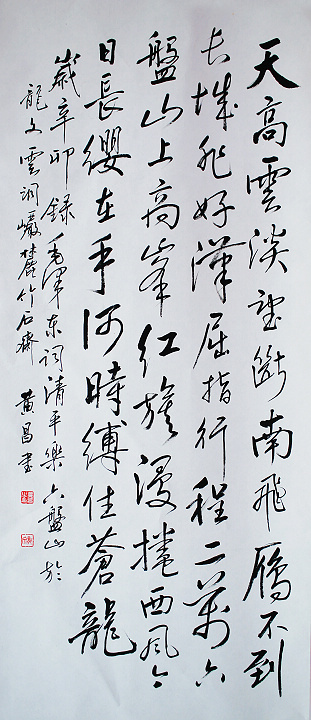 天高雲淡望斷南飛雁不到
长城非好漢屈指行程二萬六
盤山上高峰紅旗漫捲西風今
日長纓在手何時縛住蒼龍
歲辛卯錄毛澤东詞清平樂六盤山於
龍文雲洞巖麓竹石齋 黄昌書